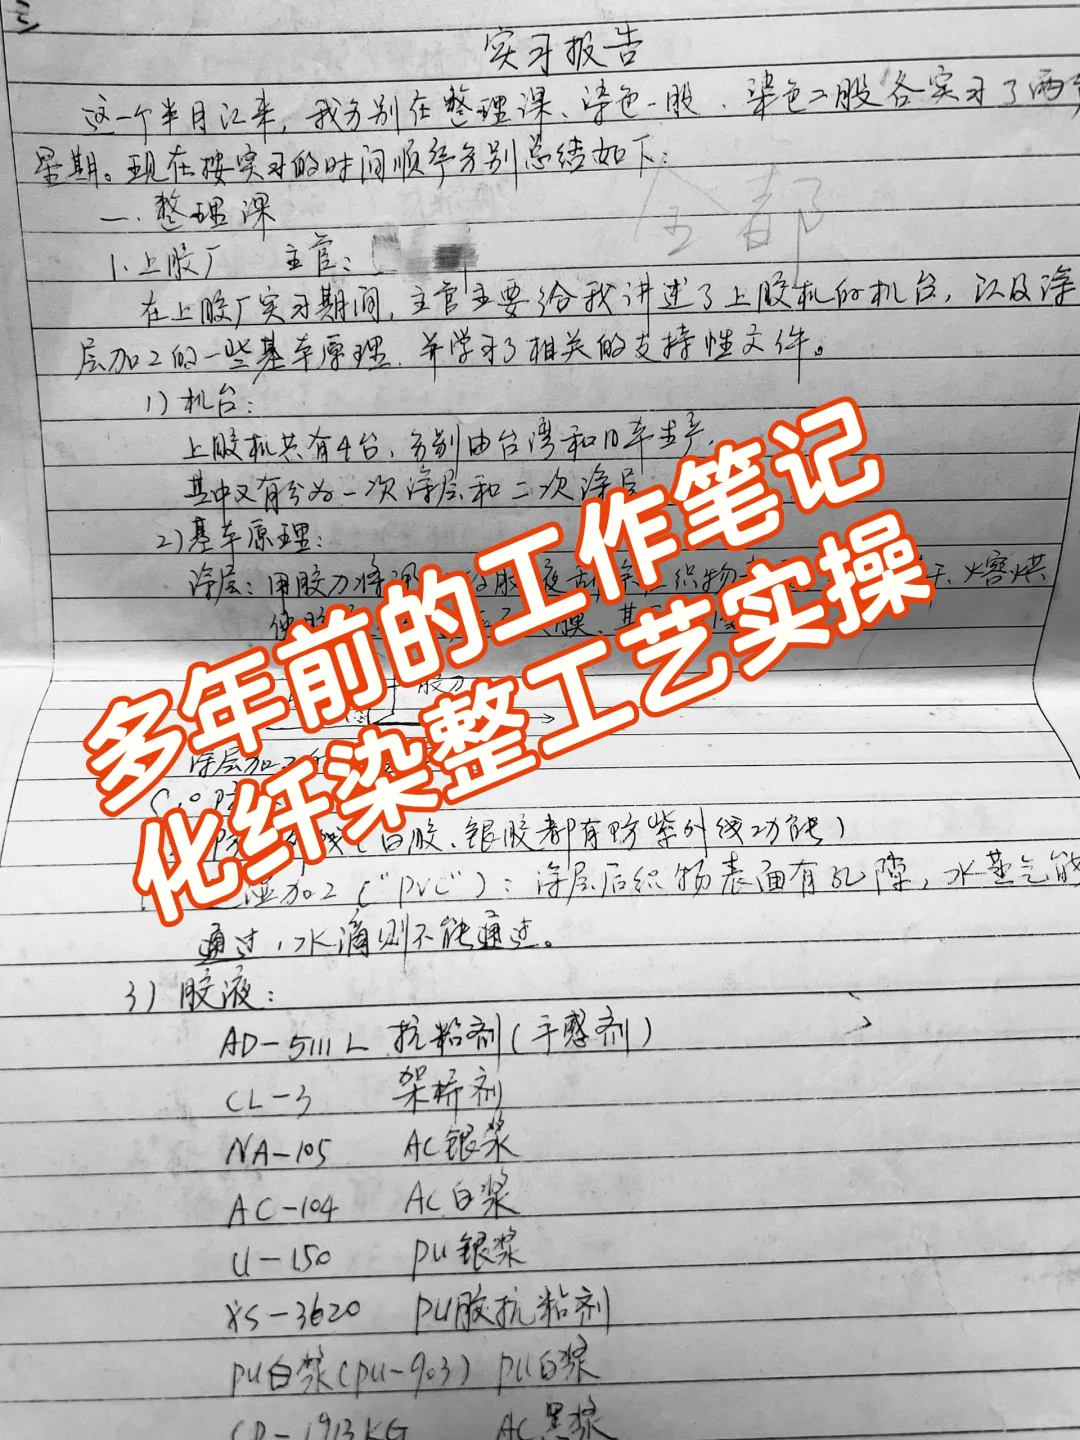 实习报告
这一个半月以来,我分别在整理课、染色一股、染色二股各实习了两
星期。现在按实习的时间顺序分别总结如下:
全部
一、整理课
1、上胶厂 主官:
在上胶厂实习期间,主官主要给我讲述了上胶机的机台,以及涂
层加工的一些基本原理,并学习了相关的支持性文件。
1)机台:
上胶机共有4台,分别由台湾和日本生产,
其中又有分为一次涂层和二次涂层
2)基本原理:
涂层:用胶刀将 织物 熔烘
胶刀
多年前的工作笔记
化纤染整工艺实操
涂层加工
白胶、银胶都有防紫外线功能)
湿加工("PVC"):涂层后织物表面有孔隙,水蒸气能
通过,水滴则不能通过。
3)胶液:
AD-5111L 抗粘剂(手感剂)
CL-3 架桥剂
NA-105 AC银浆
AC-104 AC白浆
U-150 PU银浆
XS-3620 PU胶抗粘剂
PU白浆(PU-903) PU白浆
CD-1913KG AC黑浆